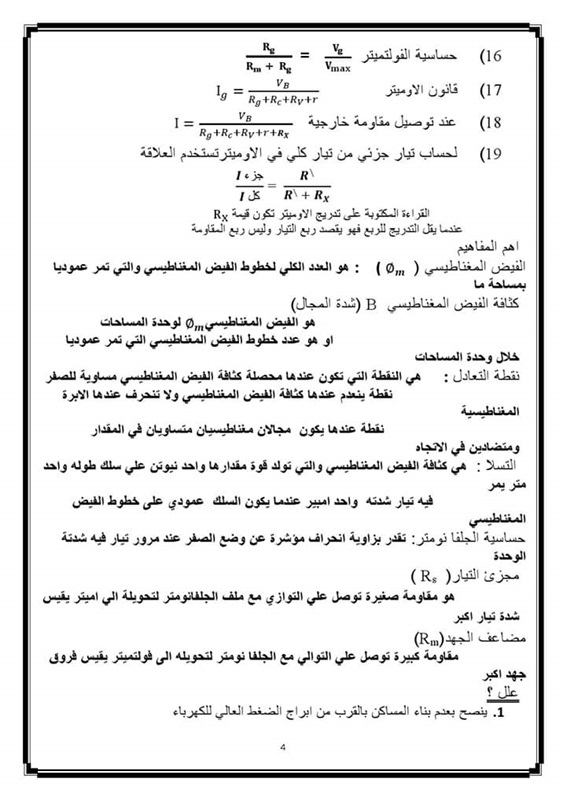 16) حساسية الفولتميتر Vg/Vmax = Rg/(Rm + Rg)
17) قانون الاوميتر Ig = VB/(Rg+Rc+RV+r)
18) عند توصيل مقاومة خارجية I = VB/(Rg+Rc+RV+r+RX)
19) لحساب تيار جزئي من تيار كلي في الاوميترتستخدم العلاقة
جزء I / كل I = R\ / (R\ + RX)
القراءة المكتوبة على تدريج الاوميتر تكون قيمة RX
عندما يقل التدريج للربع فهو يقصد ربع التيار وليس ربع المقاومة
اهم المفاهيم
الفيض المغناطيسي ( ∅m ) : هو العدد الكلي لخطوط الفيض المغناطيسي والتي تمر عموديا
بمساحة ما
كثافة الفيض المغناطيسي B (شدة المجال)
هو الفيض المغناطيسي∅m لوحدة المساحات
او هو عدد خطوط الفيض المغناطيسي التي تمر عموديا
خلال وحدة المساحات
نقطة التعادل : هي النقطة التي تكون عندها محصلة كثافة الفيض المغناطيسي مساوية للصفر
نقطة ينعدم عندها كثافة الفيض المغناطيسي ولا تنحرف عندها الابرة
المغناطيسية
نقطة عندها يكون مجالان مغناطيسيان متساويان في المقدار
ومتضادين في الاتجاه
التسلا : هي كثافة الفيض المغناطيسي والتي تولد قوة مقدارها واحد نيوتن علي سلك طوله واحد
متر يمر
فيه تيار شدته واحد امبير عندما يكون السلك عمودي على خطوط الفيض
المغناطيسي
حساسية الجلفا نومتر: تقدر بزاوية انحراف مؤشرة عن وضع الصفر عند مرور تيار فيه شدتة
الوحدة
مجزئ التيار( Rs )
هو مقاومة صغيرة توصل علي التوازي مع ملف الجلفانومتر لتحويلة الي اميتر يقيس
شدة تيار اكبر
مضاعف الجهد(Rm)
مقاومة كبيرة توصل علي التوالي مع الجلفا نومتر لتحويله الى فولتميتر يقيس فروق
جهد اكبر
علل ؟
1. ينصح بعدم بناء المساكن بالقرب من ابراج الضغط العالي للكهرباء
4